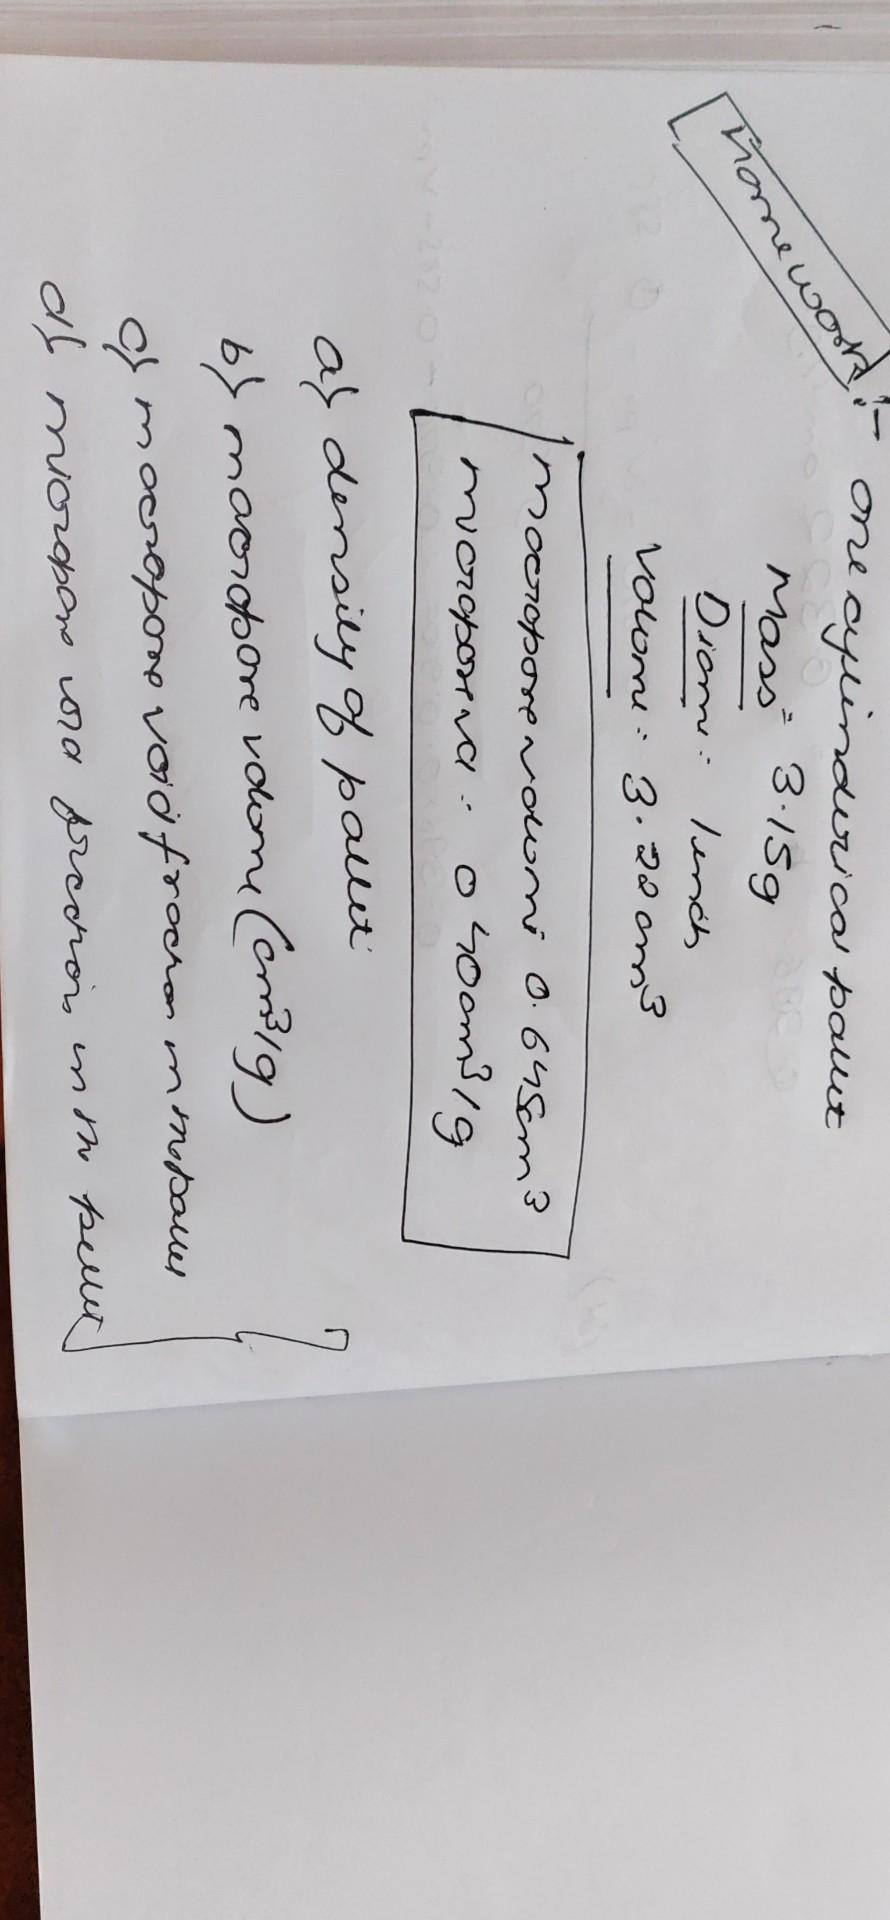 Homework :- one cylinderical pallet
Mass = 3.15g
Diam: 1 inch
Volume: 3.28 cm³
macropore volume: 0.645cm³
micropore vol: 0.40cm³/g
a} density of pallet
b} macropore volume (cm³/g)
c} macropore void fraction in pallet
d} micropore void fraction in the pellet